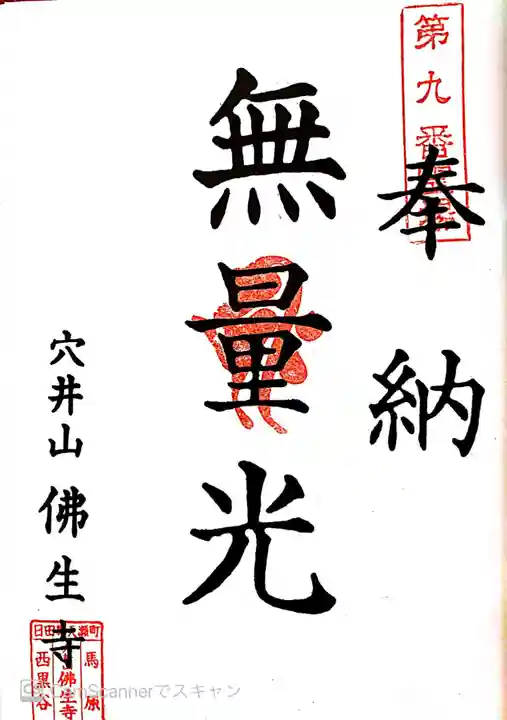 第九番
奉納
無量光
穴井山 佛生寺
馬原
佛生寺
西黒谷
CamScannerでスキャン